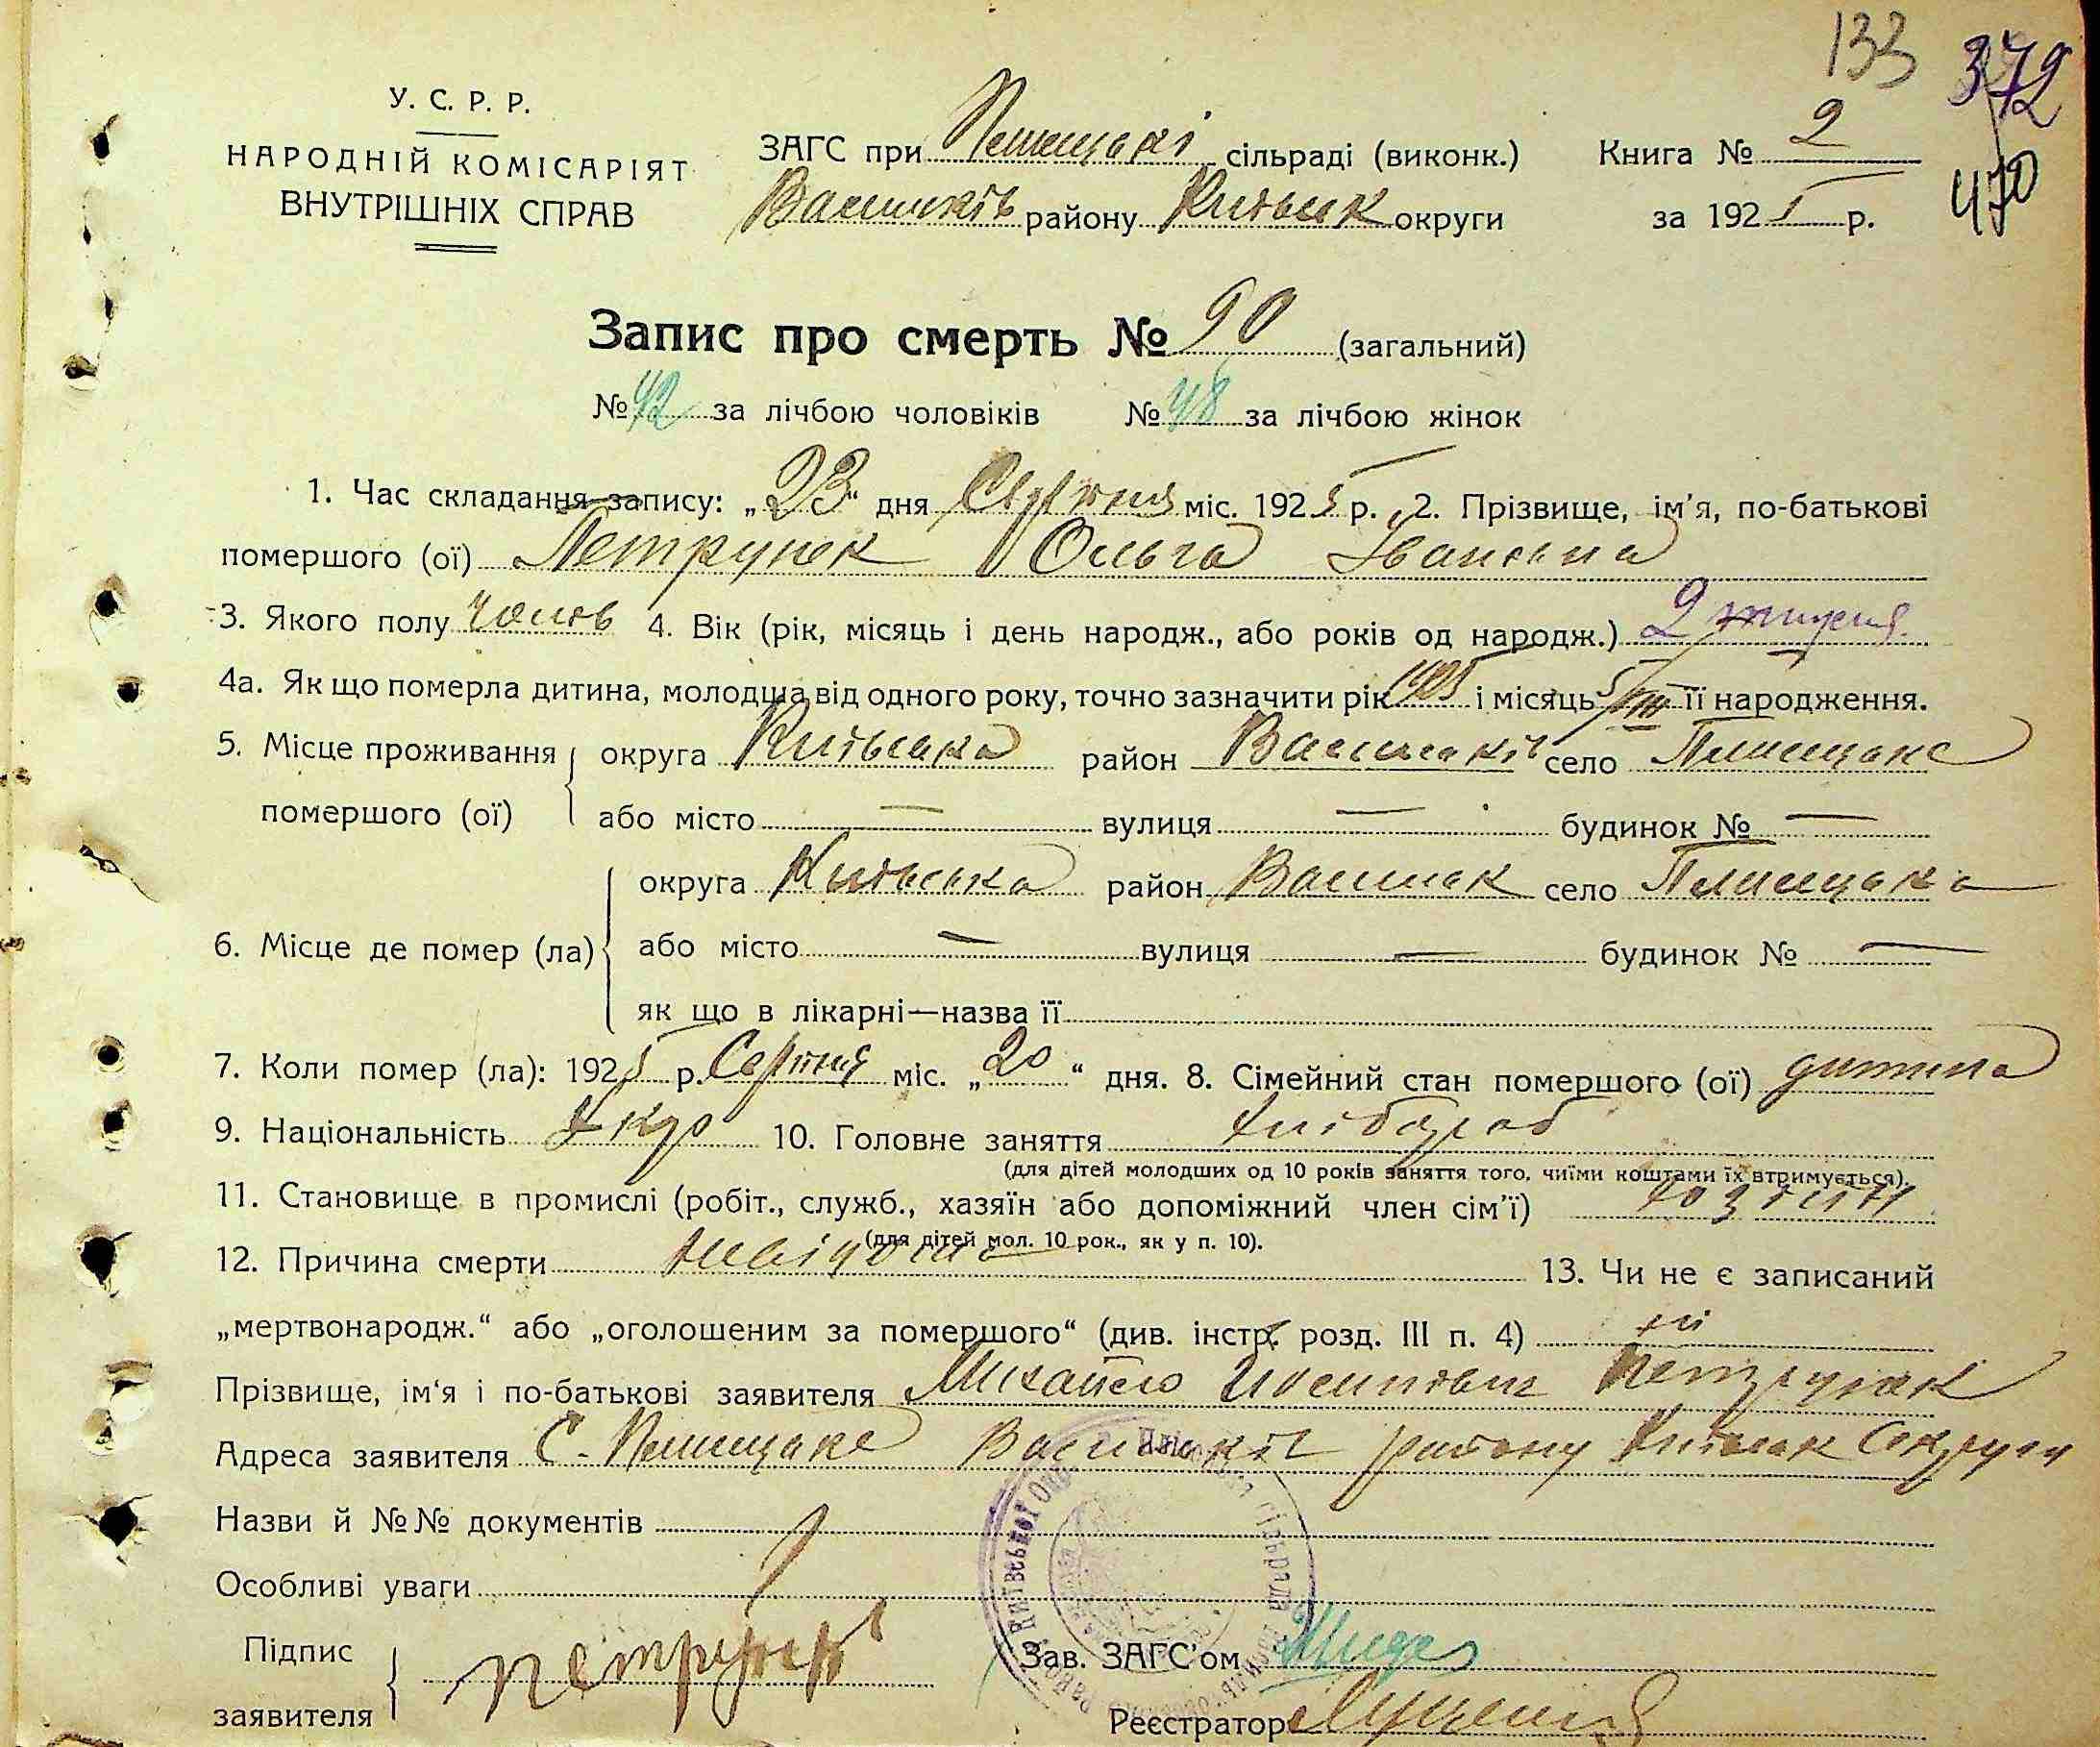 133 372
470
У. С. Р. Р.
НАРОДНІЙ КОМІСАРІЯТ
ВНУТРІШНІХ СПРАВ
ЗАГС при сільраді (виконк.)
Васильків району Київськ округи
Книга № 2
за 1925 р.
Запис про смерть № 90 (загальний)
№ 42 за лічбою чоловіків № 48 за лічбою жінок
1. Час складання запису: „23“ дня Серпня міс. 1925 р. 2. Прізвище, ім'я, по-батькові
помершого (ої) Петрунек Ольга Івановна
3. Якого полу 4. Вік (рік, місяць і день народж., або років од народж.) 2 тижня
4а. Як що померла дитина, молодща від одного року, точно зазначити рік 1925 і місяць 5/VIII її народження.
5. Місце проживання помершого (ої) округа Київська район Васильків село Плисецьке
або місто — вулиця — будинок № —
6. Місце де помер (ла) округа Київська район Васильк село Плисецьке
або місто — вулиця — будинок № —
як що в лікарні—назва її
7. Коли помер (ла): 1925 р. Серпня міс. „20“ дня. 8. Сімейний стан помершого (ої) дитина
9. Національність Укр 10. Головне заняття хлібороб
(для дітей молодших од 10 років заняття того, чиїми коштами їх втримується).
11. Становище в промислі (робіт., служб., хазяїн або допоміжний член сім'ї) хозяїн
(для дітей мол. 10 рок., як у п. 10).
12. Причина смерти невідома 13. Чи не є записаний
„мертвонародж.“ або „оголошеним за помершого“ (див. інстр. розд. III п. 4) ні
Прізвище, ім'я і по-батькові заявителя Михайло Йосипович Петрунек
Адреса заявителя С. Плисецьке Васильків району Київськ Округи
Назви й №№ документів
Особливі уваги
Підпис заявителя Петрунек
Зав. ЗАГС'ом
Реєстратор